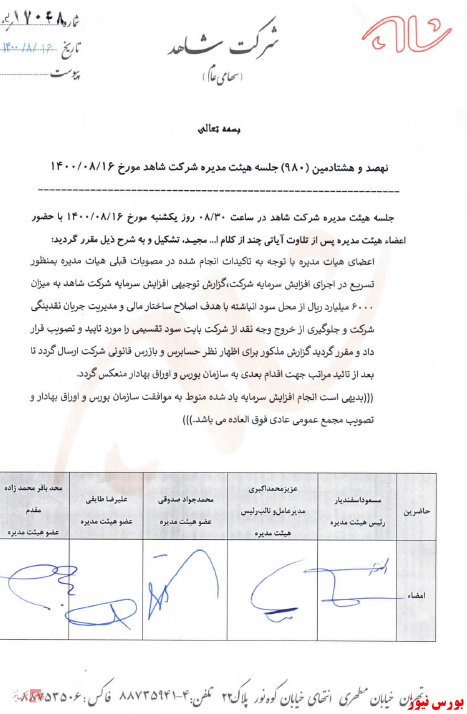 شرکت شاهد
(سهامی عام)
شماره ۱۷۰۴۸
تاریخ ۱۴۰۰/۸/۱۶
پیوست
بسمه تعالی
نهصد و هشتادمین (۹۸۰) جلسه هیئت مدیره شرکت شاهد مورخ ۱۴۰۰/۰۸/۱۶
جلسه هیئت مدیره شرکت شاهد در ساعت ۰۸/۳۰ روز یکشنبه مورخ ۱۴۰۰/۰۸/۱۶ با حضور
اعضاء هیئت مدیره پس از تلاوت آیاتی چند از کلام ا... مجید، تشکیل و به شرح ذیل مقرر گردید:
اعضای هیات مدیره با توجه به تاکیدات انجام شده در مصوبات قبلی هیات مدیره بمنظور
تسریع در اجرای افزایش سرمایه شرکت،گزارش توجیهی افزایش سرمایه شرکت شاهد به میزان
۶۰۰۰ میلیارد ریال از محل سود انباشته با هدف اصلاح ساختار مالی و مدیریت جریان نقدینگی
شرکت و جلوگیری از خروج وجه نقد از شرکت بابت سود تقسیمی را مورد تایید و تصویب قرار
داد و مقرر گردید گزارش مذکور برای اظهار نظر حسابرس و بازرس قانونی شرکت ارسال گردد تا
بعد از تائید مراتب جهت اقدام بعدی به سازمان بورس و اوراق بهادار منعکس گردد.
(((بدیهی است انجام افزایش سرمایه یاد شده منوط به موافقت سازمان بورس و اوراق بهادار و
تصویب مجمع عمومی عادی فوق العاده می باشد.)))
حاضرین
مسعوداسفندیار
رئیس هیئت مدیره
عزیزمحمداکبری
مدیرعامل‌و نائب‌رئیس
هیئت مدیره
محمدجواد صدوقی
عضو هیئت مدیره
علیرضا طایفی
عضو هیئت مدیره
محمد باقر محمد زاده
مقدم
عضو هیئت مدیره
امضاء
تهران خیابان مطهری انتهای خیابان کوه نور پلاک ۲۲ تلفن: ۴-۸۸۷۳۵۹۴۱ فاکس: ۸۸۷۵۳۵۰۶
بورس نیوز